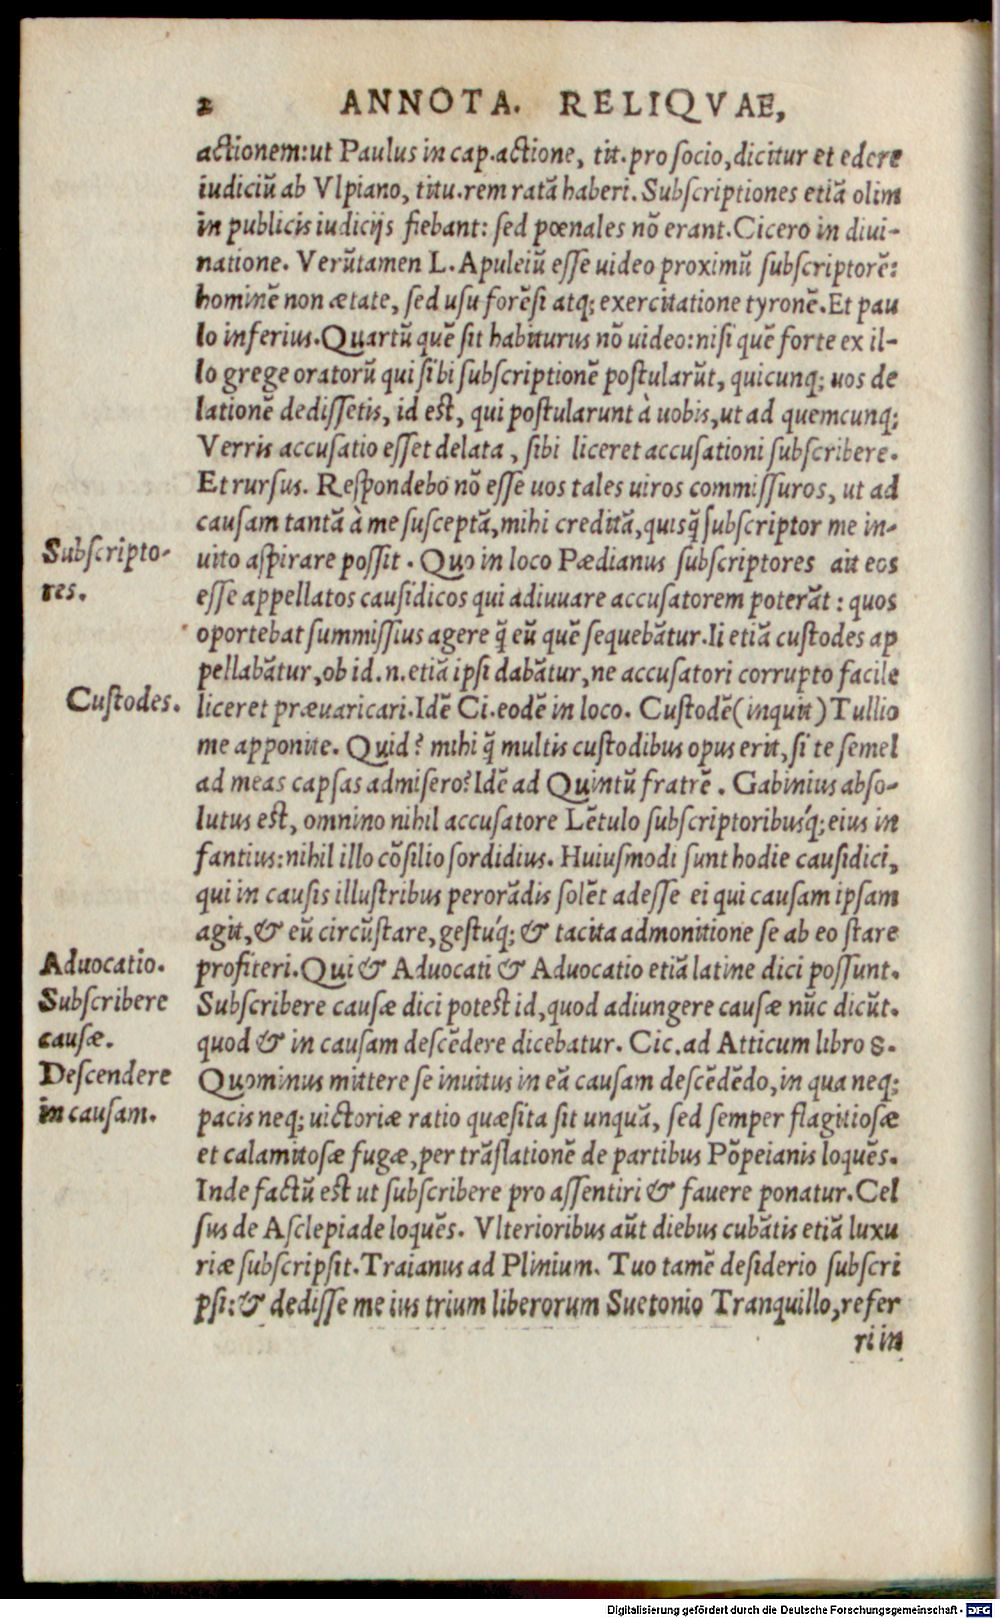 2 ANNOTA. RELIQVAE,
actionem: ut Paulus in cap. actione, tit. pro socio, dicitur et edere
iudiciũ ab Vlpiano, titu. rem ratã haberi. Subscriptiones etiã olim
in publicis iudicijs fiebant: sed pœnales nõ erant. Cicero in diui-
natione. Verũtamen L. Apuleiũ esse uideo proximũ subscriptorẽ:
hominẽ non ætate, sed usu forẽsi atq; exercitatione tyronẽ. Et pau
lo inferius. Quartũ quẽ sit habiturus nõ uideo: nisi quẽ forte ex il-
lo grege oratorũ qui sibi subscriptionẽ postularũt, quicunq; uos de
lationẽ dedissetis, id est, qui postularunt à uobis, ut ad quemcunq;
Verris accusatio esset delata, sibi liceret accusationi subscribere.
Et rursus. Respondebo nõ esse uos tales uiros commissuros, ut ad
causam tantã à me susceptã, mihi creditã, quisq̃ subscriptor me in-
uito aspirare possit. Quo in loco Pædianus subscriptores ait eos
Subscripto-
res.
esse appellatos causidicos qui adiuuare accusatorem poterãt: quos
oportebat summissius agere q̃ eũ quẽ sequebãtur. Ii etiã custodes ap
pellabãtur, ob id .n. etiã ipsi dabãtur, ne accusatori corrupto facile
Custodes.
liceret præuaricari. Idẽ Ci. eodẽ in loco. Custodẽ (inquit) Tullio
me apponite. Quid? mihi q̃ multis custodibus opus erit, si te semel
ad meas capsas admisero? Idẽ ad Quintũ fratrẽ. Gabinius abso-
lutus est, omnino nihil accusatore Lẽtulo subscriptoribusq́; eius in
fantius: nihil illo cõsilio sordidius. Huiusmodi sunt hodie causidici,
qui in causis illustribus perorãdis solẽt adesse ei qui causam ipsam
agit, & eũ circũstare, gestuq́; & tacita admonitione se ab eo stare
Aduocatio.
profiteri. Qui & Aduocati & Aduocatio etiã latine dici possunt.
Subscribere
causæ.
Subscribere causæ dici potest id, quod adiungere causæ nũc dicũt.
quod & in causam descẽdere dicebatur. Cic. ad Atticum libro 8.
Descendere
in causam.
Quominus mittere se inuitus in eã causam descẽdẽdo, in qua neq;
pacis neq; uictoriæ ratio quæsita sit unquã, sed semper flagitiosæ
et calamitosæ fugæ, per trãslationẽ de partibus Põpeianis loquẽs.
Inde factũ est ut subscribere pro assentiri & fauere ponatur. Cel
sus de Asclepiade loquẽs. Vlterioribus aũt diebus cubãtis etiã luxu
riæ subscripsit. Traianus ad Plinium. Tuo tamẽ desiderio subscri
psi: & dedisse me ius trium liberorum Suetonio Tranquillo, refer
ri in
Digitalisierung gefördert durch die Deutsche Forschungsgemeinschaft - DFG